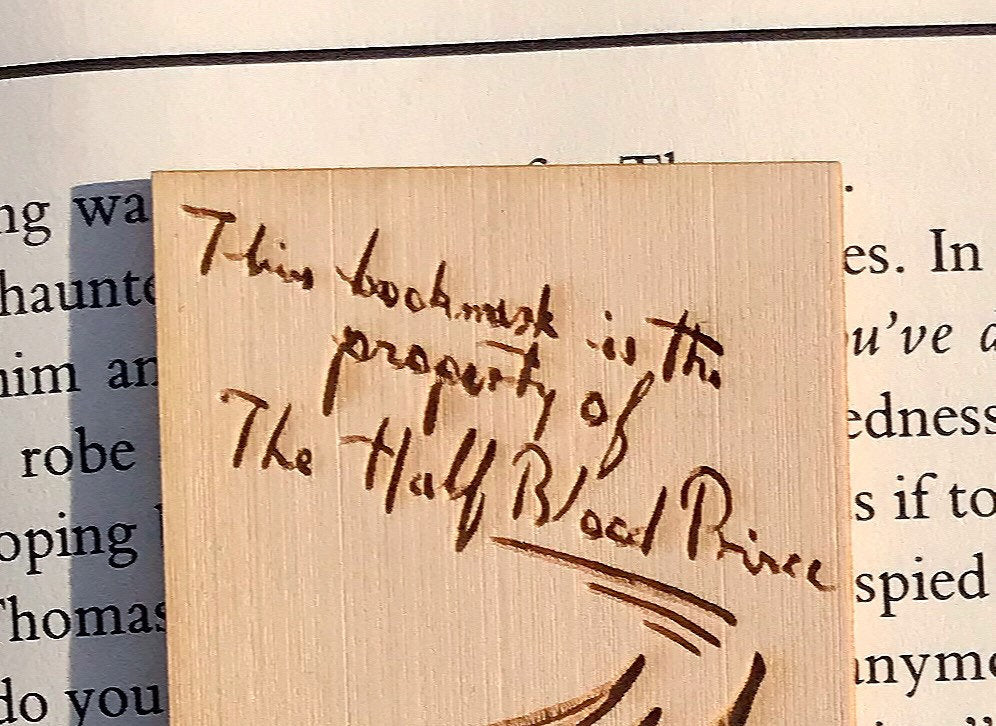 This bookmark is the
property of
The Half Blood Prince
wa
es. In
haunte
u've a
him an
edness
robe
s if to
oping
spied
Thomas
anymo
do you